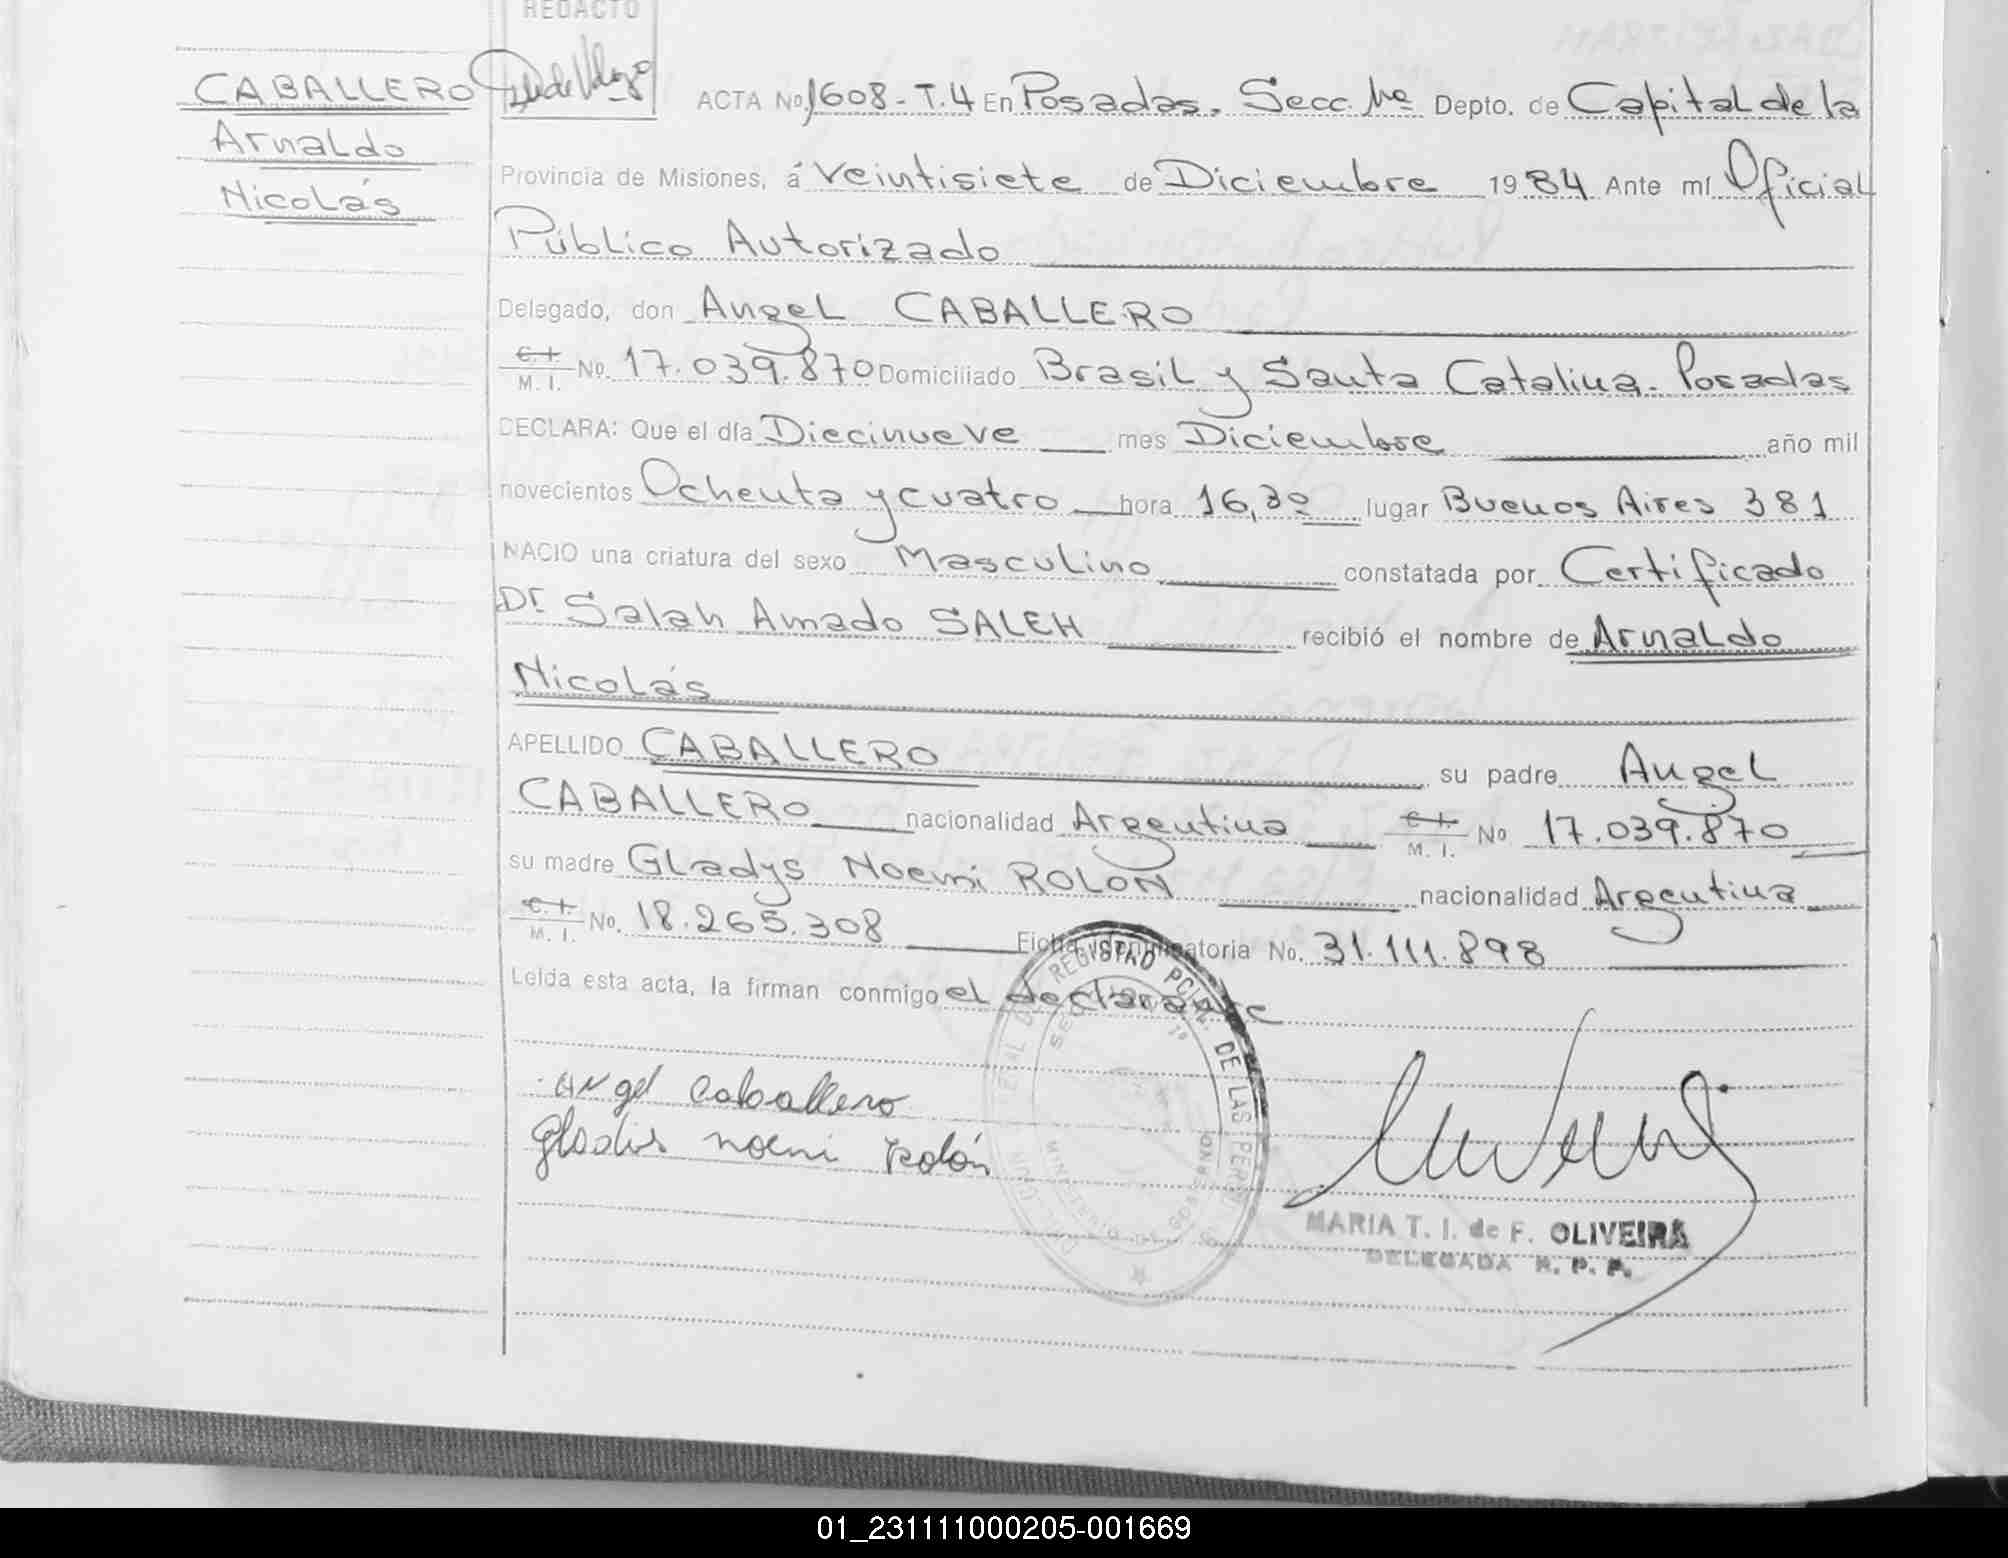 REDACTO
CABALLERO
Arnaldo
Nicolás
ACTA No. 1608-T.4 En Posadas, Secc. 1ra Depto. de Capital de la
Provincia de Misiones, á Veintisiete de Diciembre 1984 Ante mí Oficial
Público Autorizado
Delegado, don Angel CABALLERO
C.I. M. I. No. 17.039.870 Domiciliado Brasil y Santa Catalina. Posadas
DECLARA: Que el día Diecinueve mes Diciembre año mil
novecientos Ochenta y cuatro hora 16,30 lugar Buenos Aires 381
NACIO una criatura del sexo Masculino constatada por Certificado
Dr Salah Amado SALEH recibió el nombre de Arnaldo
Nicolás
APELLIDO CABALLERO su padre Angel
CABALLERO nacionalidad Argentina C.I. M. I. No 17.039.870
su madre Gladys Noemi ROLON nacionalidad Argentina
C.I. M. I. No. 18.265.308 Ficha Identificatoria No. 31.111.898
Leída esta acta, la firman conmigo el declarante
REGISTRO PCIAL. DE LAS PERSONAS
MINISTERIO DE GOBIERNO
Angel Caballero
Gladis noemi Rolón
MARIA T. I. de F. OLIVEIRA
DELEGADA R. P. P.
01_231111000205-001669